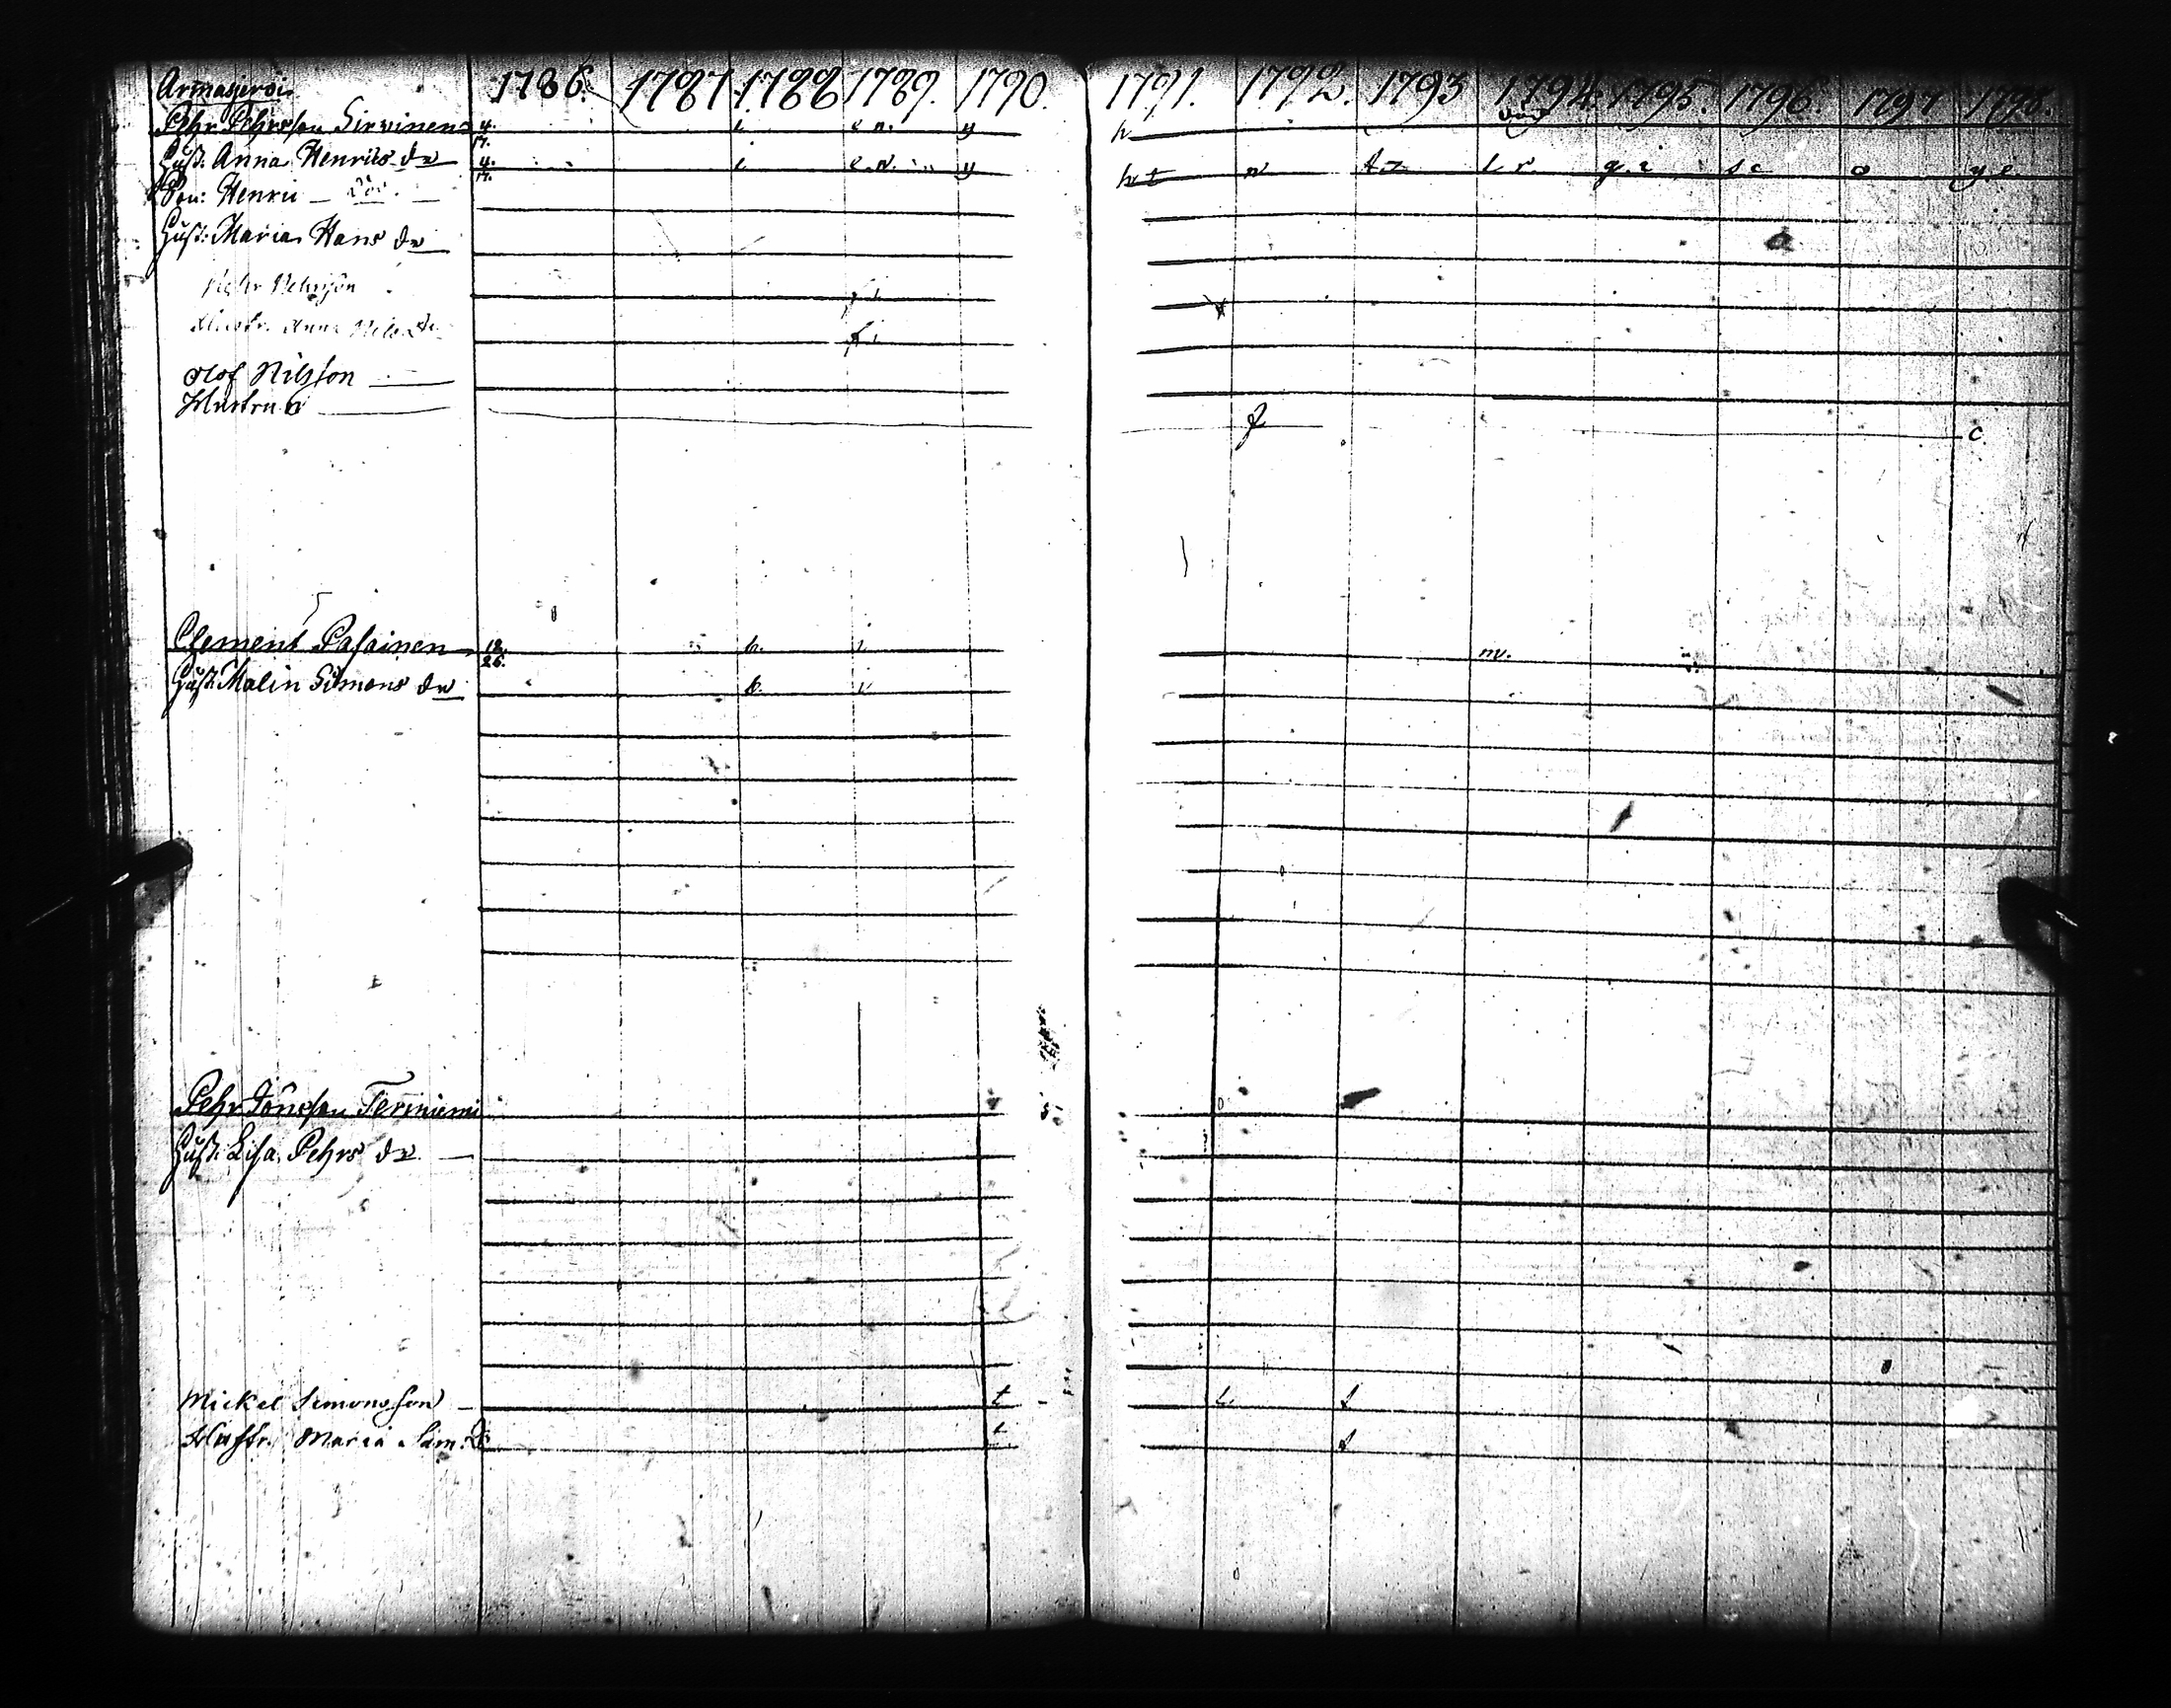 Armasjerwi 1786. 1787 1788 1789. 1790. 1791. 1792. 1793 1794 1795. 1796. 1797 1798.
Pehr Pehrsson Sirwinen 4. 17. i e n. y h död
Hust: Anna Henrics dr 4. 17. i e. n. y h t n t z l r. g. i s c o y e
Son: Henric
Hust: Maria Hans dr
Pehr Nilsson f i
Hustr. Anna Nils dr f i
Olof Nilsson
Hustru f c
Clement Pasainen 18. 26. b. i m.
Hust: Malin Simons dr b. i
Pehr Jönsson Termiemi
Hust: Lisa Pehrs dr
Mickel Simonsson t t s
Hustr. Maria Sim: D t s